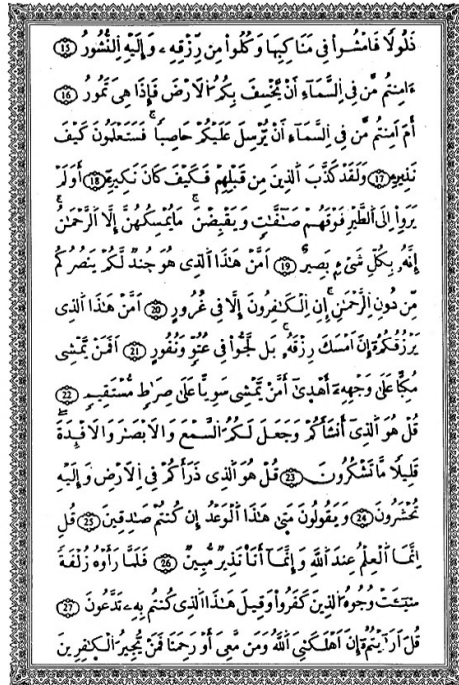 ذَلُولًا فَامْشُواْ فِي مَنَاكِبِهَا وَكُلُواْ مِن رِّزْقِهِۦ وَإِلَيْهِ اِلنُّشُورُ 15
ءَامِنتُم مَّن فِي اِلسَّمَآءِ اَنْ يَّخْسِفَ بِكُمُ اُلَارْضَ فَإِذَا هِيَ تَمُورُ 16
أَمَ اَمِنتُم مَّن فِي اِلسَّمَآءِ اَنْ يُّرْسِلَ عَلَيْكُمْ حَاصِباً فَسَتَعْلَمُونَ كَيْفَ
نَذِيرِۦ 17 وَلَقَدْ كَذَّبَ اَلذِينَ مِن قَبْلِهِمْ فَكَيْفَ كَانَ نَكِيرِۦ 18 أَوَلَمْ
يَرَوِاْ اِلَى اَلطَّيْرِ فَوْقَهُمْ صَٰٓفَّٰتٍ وَيَقْبِضْنَ مَا يُمْسِكُهُنَّ إِلَّا اَلرَّحْمَٰنُ
إِنَّهُۥ بِكُلِّ شَيْءِۢ بَصِيرٌ 19 اَمَّنْ هَٰذَا اَلذِي هُوَ جُندٌ لَّكُمْ يَنصُرُكُم
مِّن دُونِ اِلرَّحْمَٰنِ إِنِ اِلْكَٰفِرُونَ إِلَّا فِي غُرُورٍ 20 اَمَّنْ هَٰذَا اَلذِي
يَرْزُقُكُمُۥٓ إِنَ اَمْسَكَ رِزْقَهُۥ بَل لَّجُّواْ فِي عُتُوٍّ وَنُفُورٍ 21 اَفَمَنْ يَّمْشِي
مُكِبّاً عَلَىٰ وَجْهِهِۦٓ أَهْدَىٰٓ أَمَّنْ يَّمْشِي سَوِيّاً عَلَىٰ صِرَٰطٍ مُّسْتَقِيمٍ 22
قُلْ هُوَ اَلذِيٓ أَنشَأَكُمْ وَجَعَلَ لَكُمُ اُلسَّمْعَ وَالَابْصَٰرَ وَالَافْـِٕدَةَ
قَلِيلًا مَّا تَشْكُرُونَ 23 قُلْ هُوَ اَلذِي ذَرَأَكُمْ فِي اِلَارْضِ وَإِلَيْهِ
تُحْشَرُونَ 24 وَيَقُولُونَ مَتَىٰ هَٰذَا اَلْوَعْدُ إِن كُنتُمْ صَٰدِقِينَ 25 قُلِ
اِنَّمَا اَلْعِلْمُ عِندَ اَللَّهِ وَإِنَّمَآ أَنَا نَذِيرٌ مُّبِينٌ 26 فَلَمَّا رَأَوْهُ زُلْفَةً
سِيٓـَٔتْ وُجُوهُ اُلذِينَ كَفَرُواْ وَقِيلَ هَٰذَا اَلذِي كُنتُم بِهِۦ تَدَّعُونَ 27
قُلَ اَرَٰٓيْتُمُۥٓ إِنَ اَهْلَكَنِيَ اَللَّهُ وَمَن مَّعِيَ أَوْ رَحِمَنَا فَمَنْ يُّجِيرُ اُلْكَٰفِرِينَ